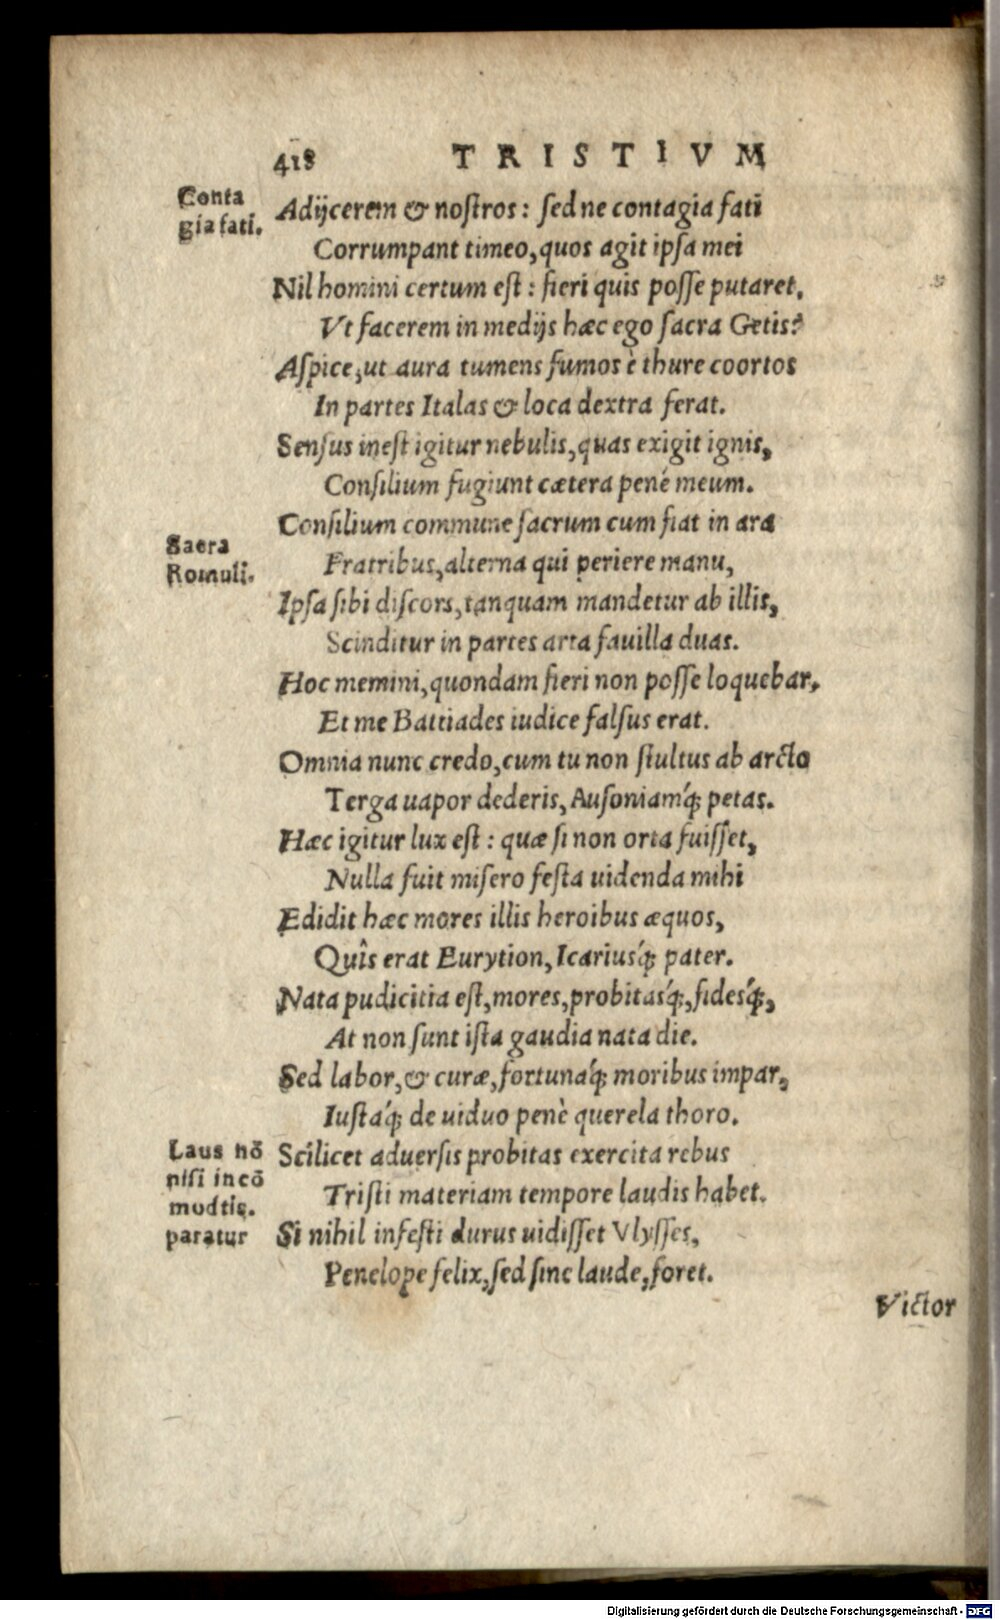 418 TRISTIVM
Conta
gia fati.
Adijcerem & nostros: sed ne contagia fati
Corrumpant timeo, quos agit ipsa mei
Nil homini certum est: fieri quis posse putaret,
Vt facerem in medijs hæc ego sacra Getis?
Aspice, ut aura tumens fumos è thure coortos
In partes Italas & loca dextra ferat.
Sensus inest igitur nebulis, quas exigit ignis,
Consilium fugiunt cætera penè meum.
Consilium commune sacrum cum fiat in ara
Sacra
Romuli.
Fratribus, alterna qui periere manu,
Ipsa sibi discors, tanquam mandetur ab illis,
Scinditur in partes arta fauilla duas.
Hoc memini, quondam fieri non posse loquebar,
Et me Battiades iudice falsus erat.
Omnia nunc credo, cum tu non stultus ab arcto
Terga uapor dederis, Ausoniamq́; petas.
Hæc igitur lux est: quæ si non orta fuisset,
Nulla fuit misero festa uidenda mihi
Edidit hæc mores illis heroibus æquos,
Quîs erat Eurytion, Icariusq́; pater.
Nata pudicitia est, mores, probitasq́;, fidesq́;,
At non sunt ista gaudia nata die.
Sed labor, & curæ, fortunaq́; moribus impar,
Iustaq́; de uiduo penè querela thoro.
Laus nō
nisi incō
modtis.
paratur
Scilicet aduersis probitas exercita rebus
Tristi materiam tempore laudis habet.
Si nihil infesti durus uidisset Vlysses,
Penelope felix, sed sine laude, foret.
Victor
Digitalisierung gefördert durch die Deutsche Forschungsgemeinschaft - DFG